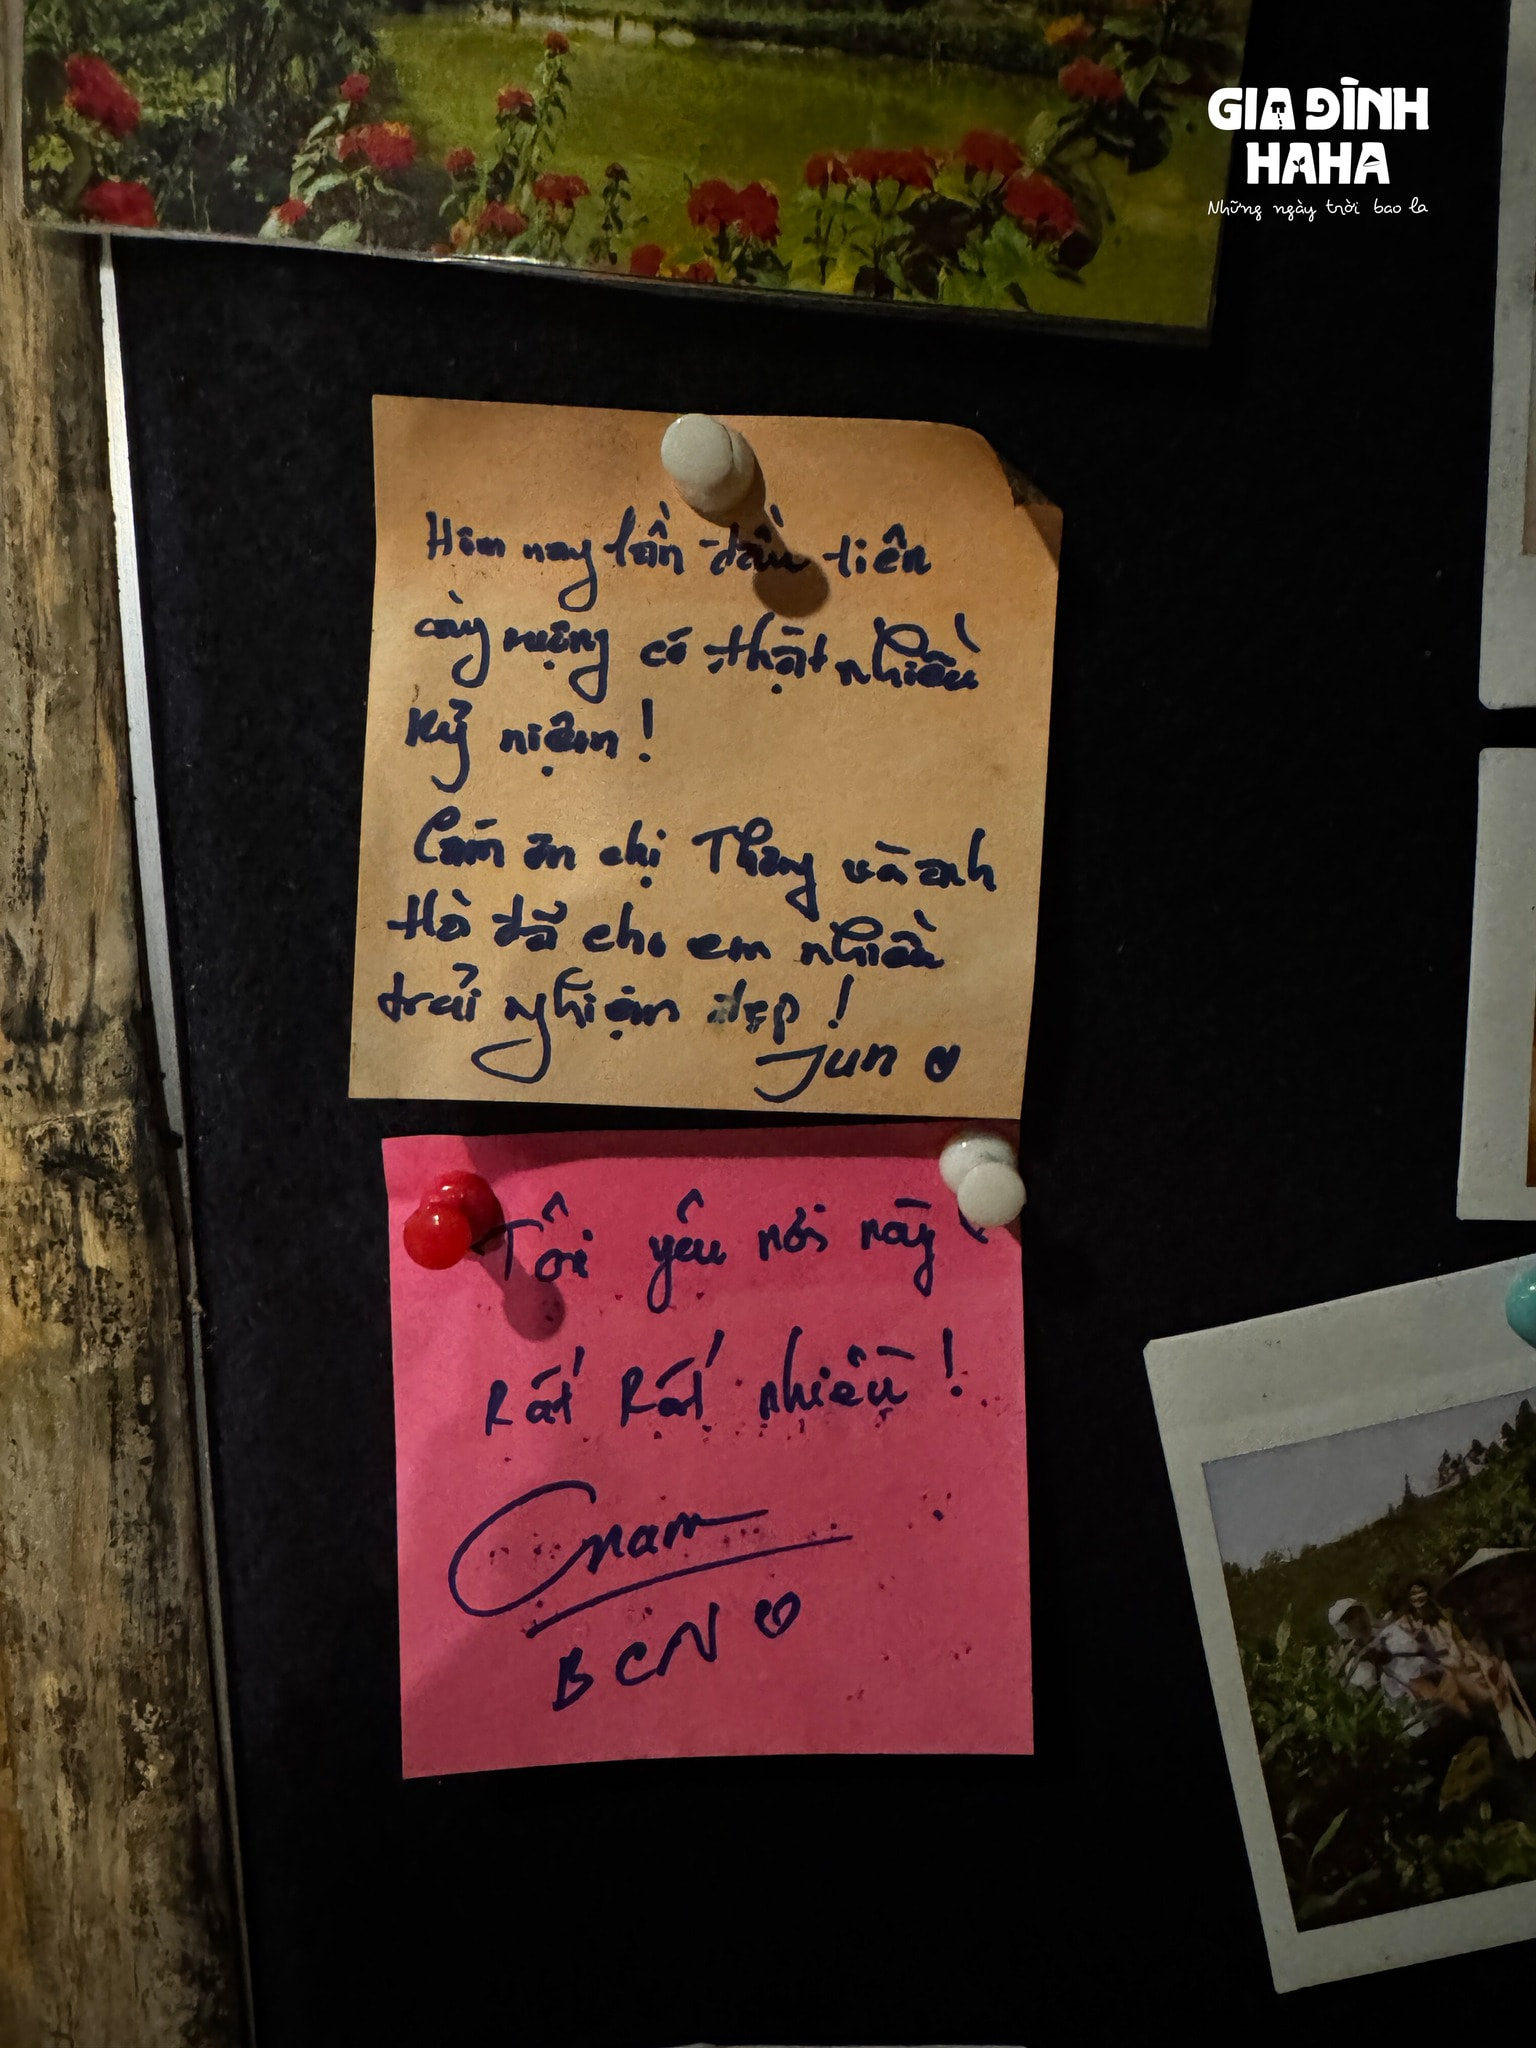 GIA ĐÌNH
HAHA
Những ngày trời bao la
Hôm nay lần đầu tiên
cày ruộng có thật nhiều
kỷ niệm!
Cám ơn chị Thơng và anh
Hà đã cho em nhiều
trải nghiệm đẹp!
Jun
Tôi yêu nơi này
Rất Rất nhiều!
BCN